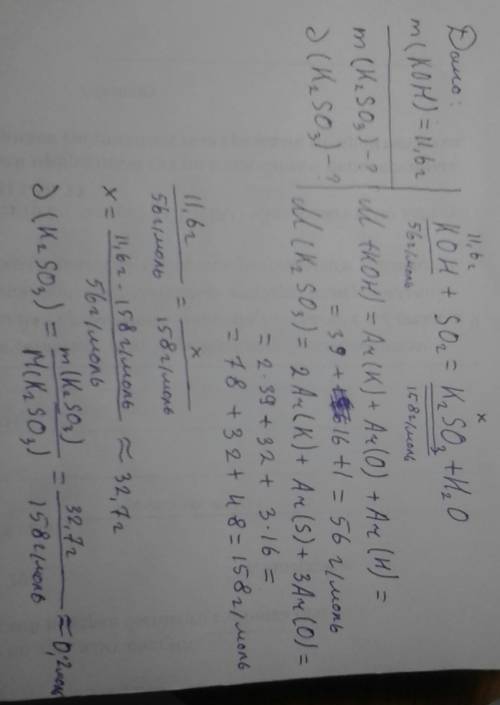 Дано:
m(KOH) = 11,6г
m(K₂SO₃) - ?
∂(K₂SO₃) - ?
11,6г x
KOH + SO₂ = K₂SO₃ + H₂O
56г/моль 158г/моль
M(KOH) = Ar(K) + Ar(O) + Ar(H) =
= 39 + 16 + 1 = 56 г/моль
M(K₂SO₃) = 2Ar(K) + Ar(S) + 3Ar(O) =
= 2·39 + 32 + 3·16 =
= 78 + 32 + 48 = 158 г/моль
11,6г / 56г/моль = x / 158г/моль
x = 11,6г · 158г/моль / 56г/моль ≈ 32,7г
∂(K₂SO₃) = m(K₂SO₃) / M(K₂SO₃) = 32,7г / 158г/моль ≈ 0,2моль